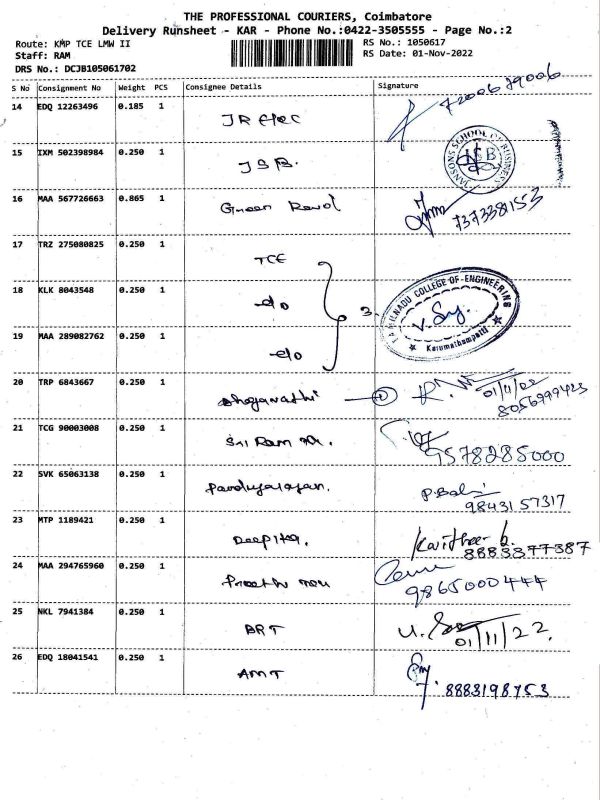 THE PROFESSIONAL COURIERS, Coimbatore
Delivery Runsheet - KAR - Phone No.:0422-3505555 - Page No.:2
Route: KMP TCE LMW II
RS No.: 1050617
Staff: RAM
RS Date: 01-Nov-2022
DRS No.: DCJB105061702
S No Consignment No Weight PCS Consignee Details Signature
14 EDQ 12263496 0.185 1
JR Elec
15 IXM 502398984 0.250 1
JSB.
JANSONS SCHOOL OF BUSINESS
JSB
16 MAA 567726663 0.865 1
Green
7373381153
17 TRZ 275080825 0.250 1
TCE
18 KLK 8043548 0.250 1
3
TAMILNADU COLLEGE OF ENGINEERING
Karumathampatti
19 MAA 289082762 0.250 1
20 TRP 6843667 0.250 1
1
8056999423
21 TCG 90003008 0.250 1
Sri Ram
9578285000
22 SVK 65063138 0.250 1
P. Balu
9843157317
23 MTP 1189421 0.250 1
8883877387
24 MAA 294765960 0.250 1
9865000444
25 NKL 7941384 0.250 1
BRT
01/11/22
26 EDQ 18041541 0.250 1
AMT
8883198753